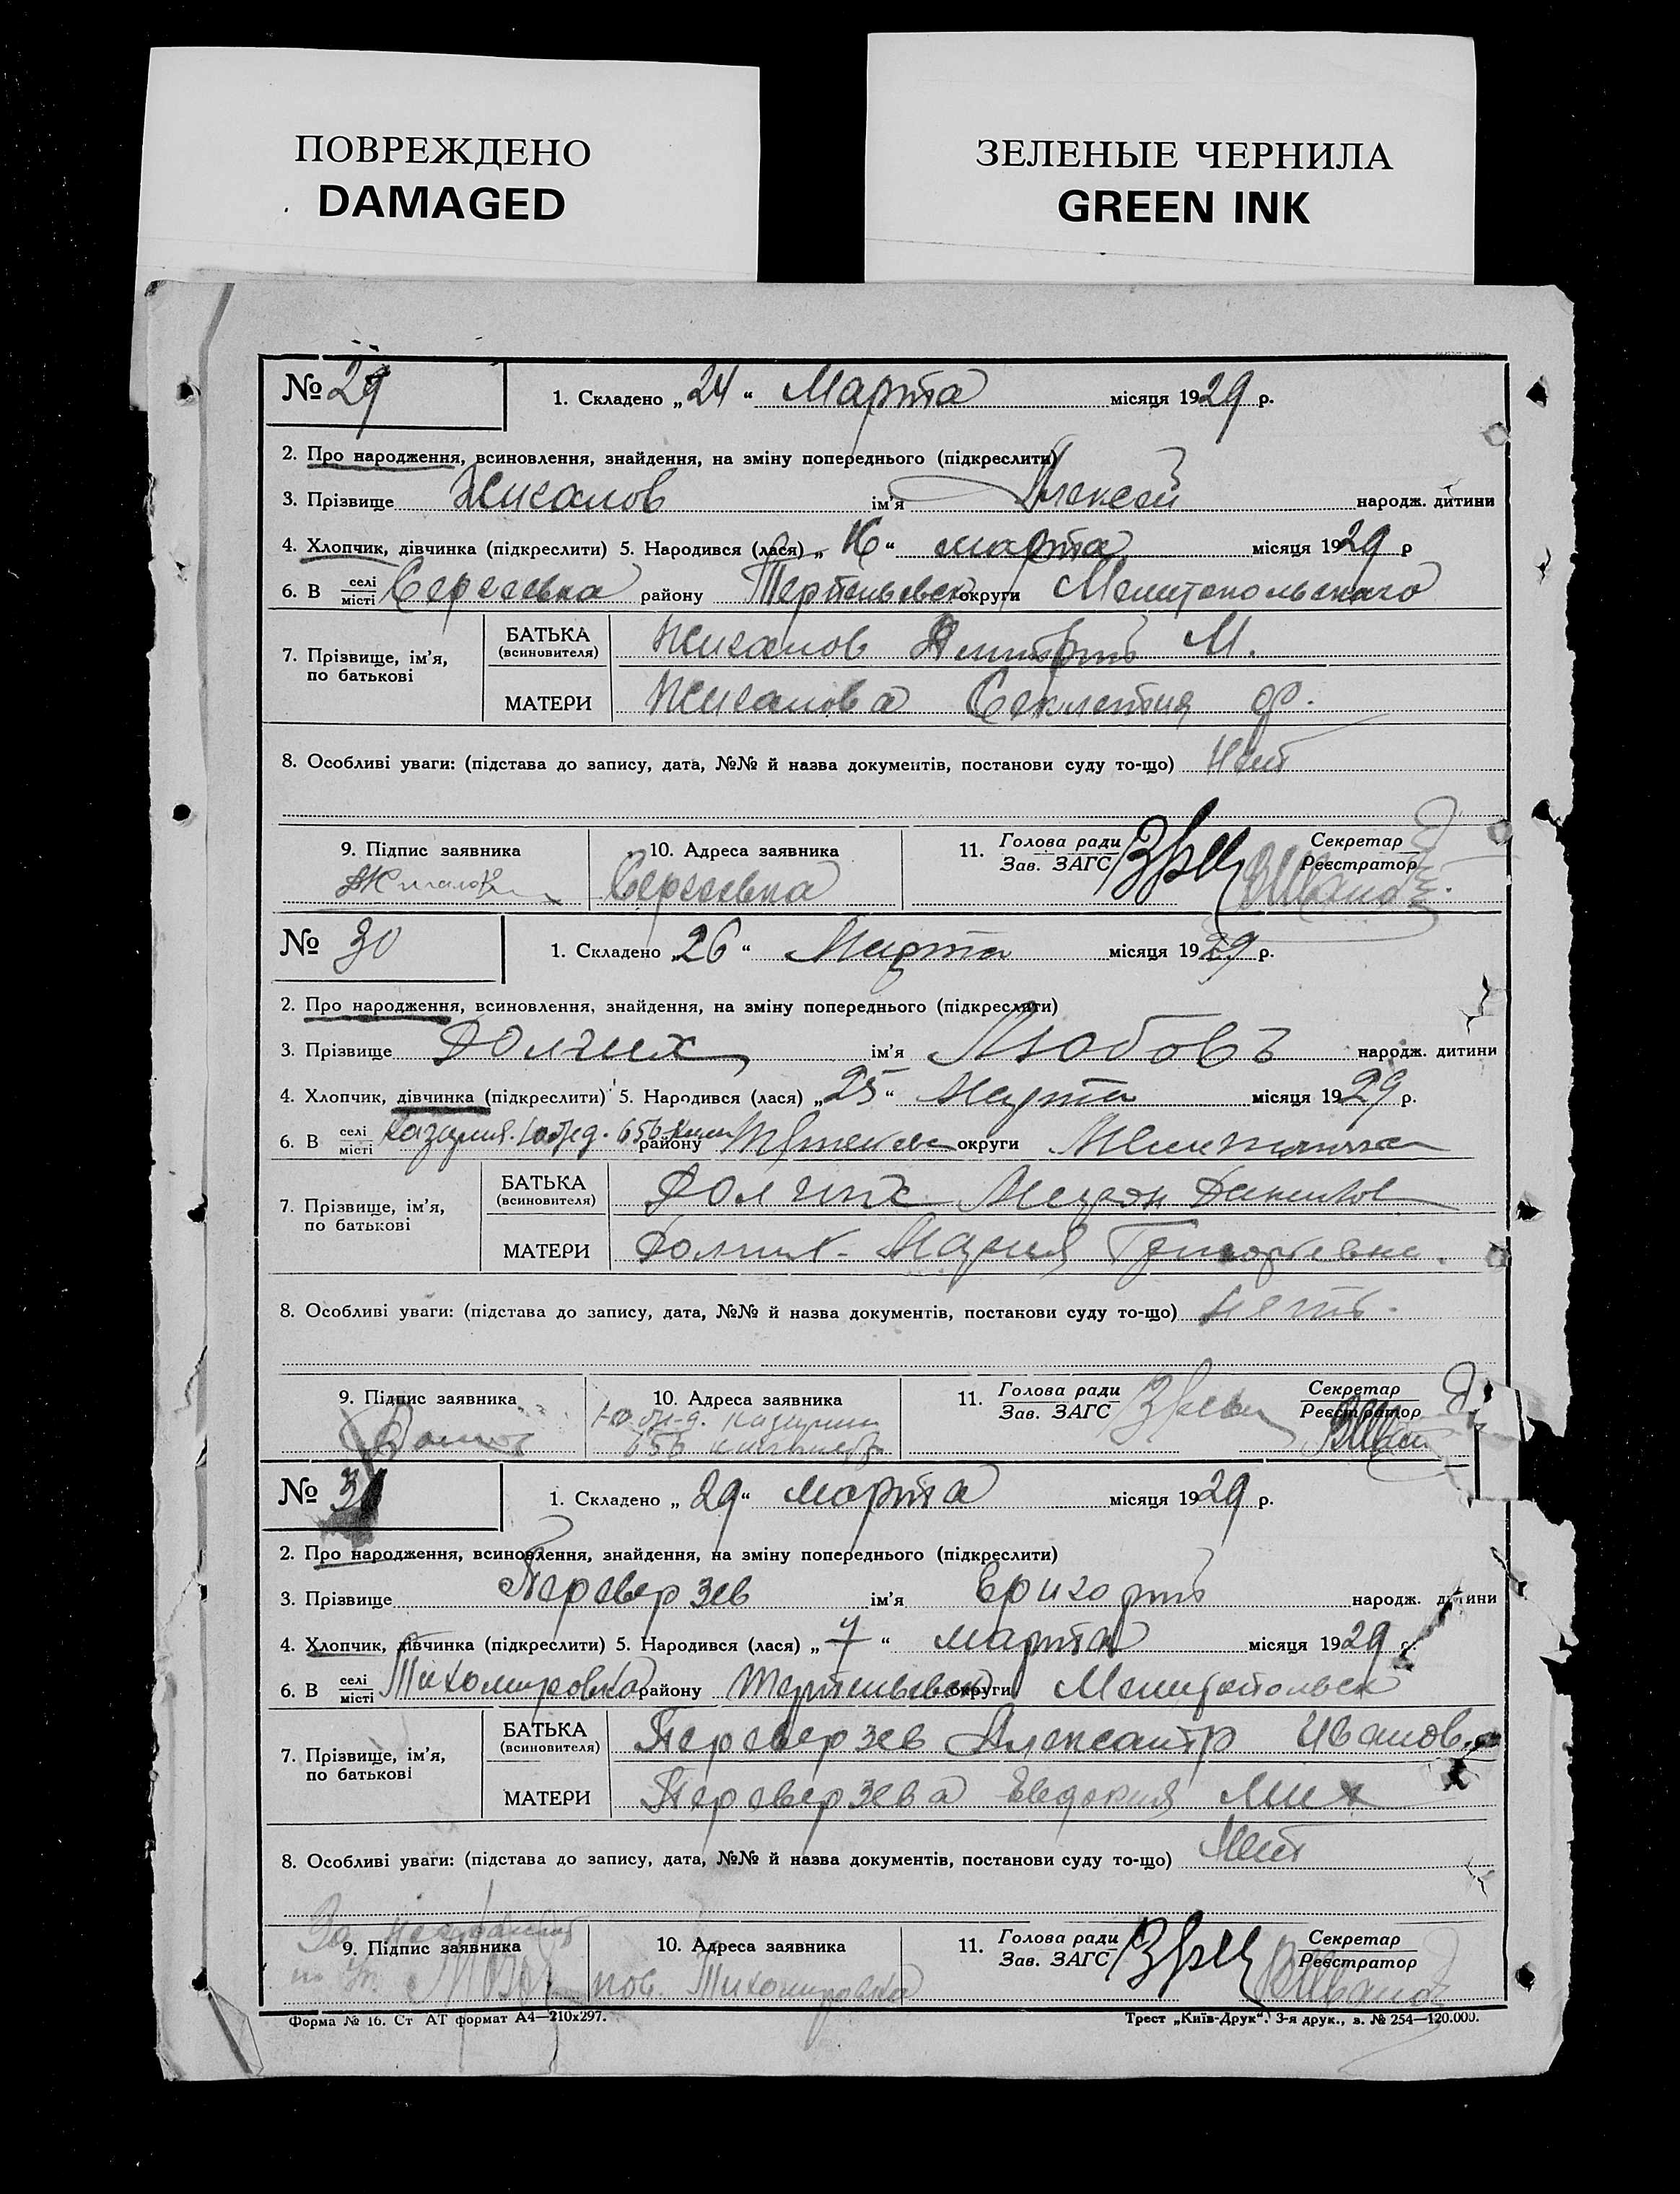 ПОВРЕЖДЕНО
DAMAGED
ЗЕЛЕНЫЕ ЧЕРНИЛА
GREEN INK
№ 29 1. Складено „24“ Марта місяця 1929 р.
2. Про народження, всиновлення, знайдення, на зміну попереднього (підкреслити)
3. Прізвище Жиганов ім'я Алексей народж. дитини
4. Хлопчик, дівчинка (підкреслити) 5. Народився (лася) „16“ марта місяця 1929 р
6. В селі місті Сергеевка району округи Мелитопольского
7. Прізвище, ім'я, по батькові
БАТЬКА (всиновителя) Жиганов М.
МАТЕРИ Жиганова Секлетия Ф.
8. Особливі уваги: (підстава до запису, дата, №№ й назва документів, постанови суду то-що) Нет
9. Підпис заявника
10. Адреса заявника Сергеевка
11. Голова ради Зав. ЗАГС
Секретар Реєстратор
№ 30 1. Складено „26“ Марта місяця 1929 р.
2. Про народження, всиновлення, знайдення, на зміну попереднього (підкреслити)
3. Прізвище Долгих ім'я Любовь народж. дитини
4. Хлопчик, дівчинка (підкреслити) 5. Народився (лася) „25“ Марта місяця 1929 р.
6. В селі місті 656 району округи
7. Прізвище, ім'я, по батькові
БАТЬКА (всиновителя) Долгих
МАТЕРИ Долгих Мария Григорьевна
8. Особливі уваги: (підстава до запису, дата, №№ й назва документів, постанови суду то-що)
9. Підпис заявника
10. Адреса заявника 656
11. Голова ради Зав. ЗАГС
Секретар Реєстратор
№ 31 1. Складено „29“ марта місяця 1929 р.
2. Про народження, всиновлення, знайдення, на зміну попереднього (підкреслити)
3. Прізвище Переверзев ім'я Григорий народж. дитини
4. Хлопчик, дівчинка (підкреслити) 5. Народився (лася) „7“ марта місяця 1929 р.
6. В селі місті Тихомировка району округи Мелитопольск
7. Прізвище, ім'я, по батькові
БАТЬКА (всиновителя) Переверзев Александр Иванов.
МАТЕРИ Переверзева Евдокия Мих
8. Особливі уваги: (підстава до запису, дата, №№ й назва документів, постанови суду то-що) Нет
9. Підпис заявника
10. Адреса заявника пос. Тихомировка
11. Голова ради Зав. ЗАГС
Секретар Реєстратор
Форма № 16. Ст АТ формат А4—210х297.
Трест „Київ-Друк“. 3-я друк., з. № 254—120.000.